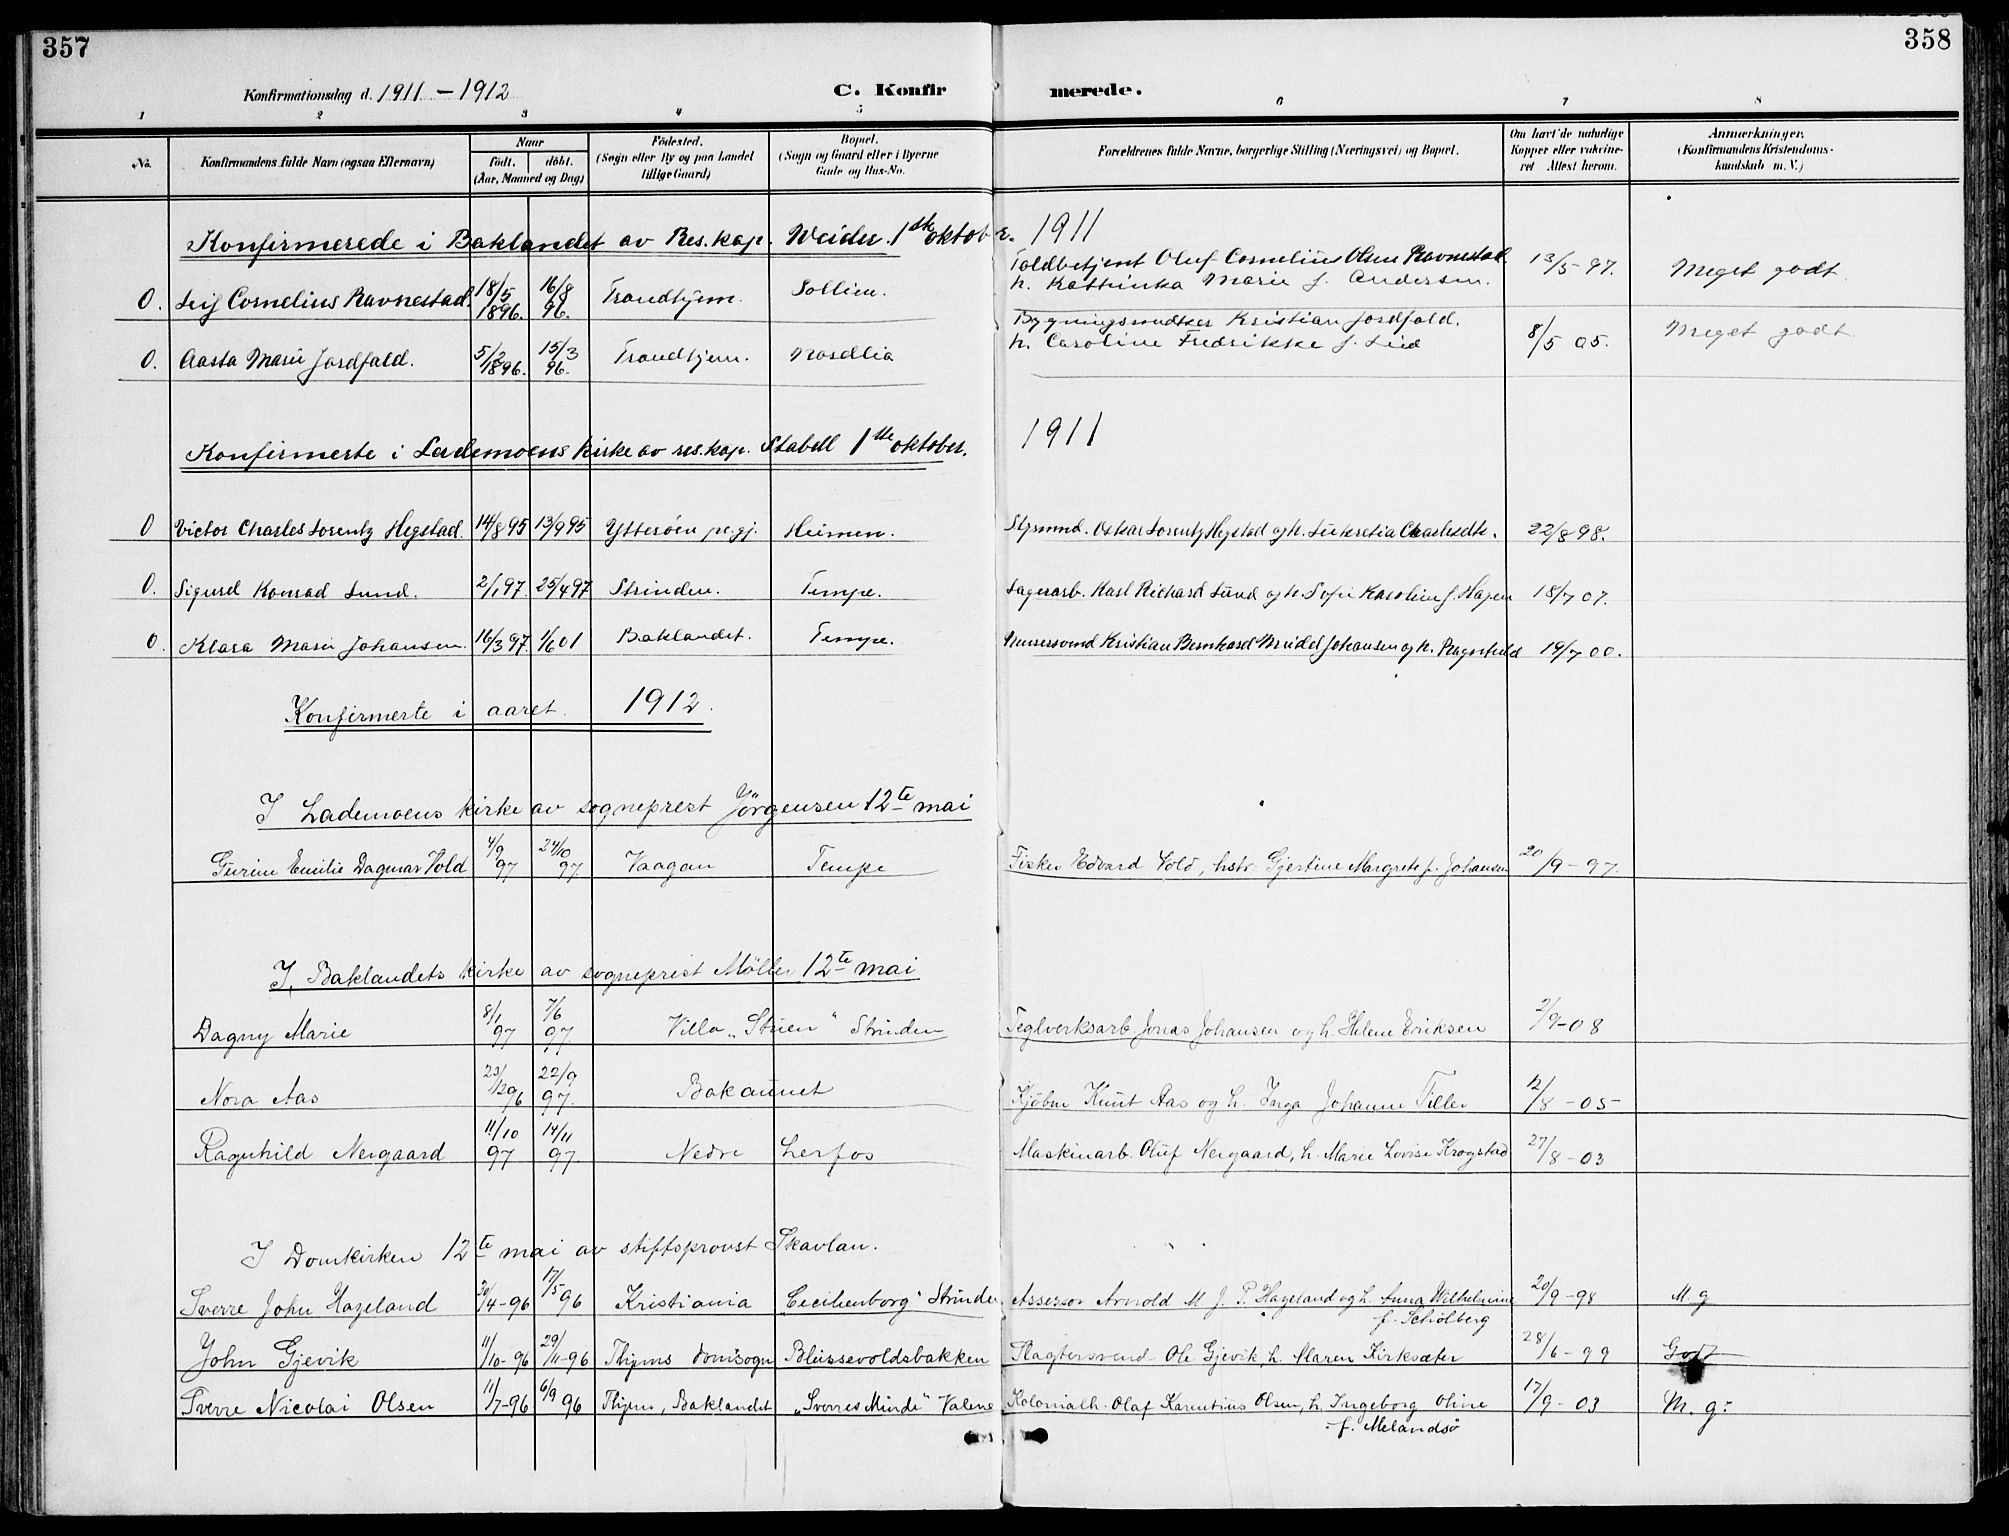 357
358
Konfirmationsdag d. 1911 – 1912
C. Konfirmerede.
1 2 3 4 5 6 7 8
No.
Konfirmandens fulde Navn (ogsaa Efternavn)
Naar
født. døbt.
(Aar, Maaned og Dag)
Fødested.
(Sogn eller By og paa Landet
tillige Gaard)
Bopæl.
(Sogn og Gaard eller i Byerne
Gade og Hus-No.
Forældrenes fulde Navne, borgerlige Stilling (Næringsvei) og Bopæl.
Om havt de naturlige
Kopper eller vakcine-
ret Attest herom.
Anmærkninger.
(Konfirmandens Kristendoms-
kundskab m. V.)
Konfirmerede i Baklandet av Res. kap. Weider. 1ste oktober. 1911
O. Leif Cornelius Ravnestad. 18/5 1896. 16/8 96. Trondhjem. Sollien. Toldbetjent Oluf Cornelius Olsen Ravnestad h. Kathinka Marie f. Andersen. 13/5-97. Meget godt
O. Aasta Marie Jordfald. 5/2 1896. 15/3 96. Trondhjem. Nordlia Kristian Jordfald. h. Caroline Fredrikke f. Lied 8/5 05. Meget godt
Konfirmerte i Lademoens kirke av res. kap. Stabell 1ste oktober. 1911
O Victor Charles Lorentz Hegstad. 14/8 95 13/9 95 Ytterøen pr.gj. Heimen. Styrmand. Oskar Lorentz Hegstad og h. Lukretia 22/8 98.
O. Sigurd Konrad Lund. 2/1 97. 25/4 97 Strinden. Tempe. Lagerarb. Karl Richard Lund og h. Sofie Karoline f. Hagen 18/7 07.
O. Klara Marie Johansen. 16/3 97. 1/6 01 Baklandet. Tempe. Murersvend Kristian Bernhard Johansen og h. Ragnhild 19/7 00.
Konfirmerte i aaret. 1912.
I Lademoens kirke av sogneprest Jörgensen 12te mai
Gurine Emilie Dagmar Vold 4/9 97 24/10 97 Vaagan Tempe Fisker Edvard Vold, hstr. Gjertine Margrete f. Johansen 20/9-97.
I. Baklandets kirke av sogneprest Möller 12te mai
Dagny Marie 8/1 97 7/6 97 Villa „Stuen“ Strinden Teglverksarb. Jonas Johansen og h. Helene Eriksen 2/9-08
Nora Aas 23/12 96 22/9 97. Bakaunet Kjöbm Knut Aas og h. Inga Johanne Tiller 12/8-05
Ragnhild Nergaard 11/10 97 14/11 97. Nedre Lerfos Maskinarb. Oluf Nergaard, h. Marie Lovise Krogstad 27/8-03
I Domkirken 12te mai av stiftsprovst Skavlan.
Sverre John Hazeland 30/4-96 17/5 96 Kristiania Cecilienborg" Strinden Assessor Arnold M J. P. Hazeland og h. Anna Wilhelmine
f. Schölberg 20/9-98 M g
John Gjevik 11/10-96 29/11-96 Thjems domsogn Bleissevoldsbakken Slagtersvend Ole Gjevik, h. Maren Kirksæter 28/6-99 Godt
Sverre Nicolai Olsen 11/7-96 6/9 96 Thjem, Baklandet „Sverres Minde“ Valene Kolonialh. Olaf Karentius Olsen, h. Ingeborg Oline
f. Melandsö 17/9-03 M. g.